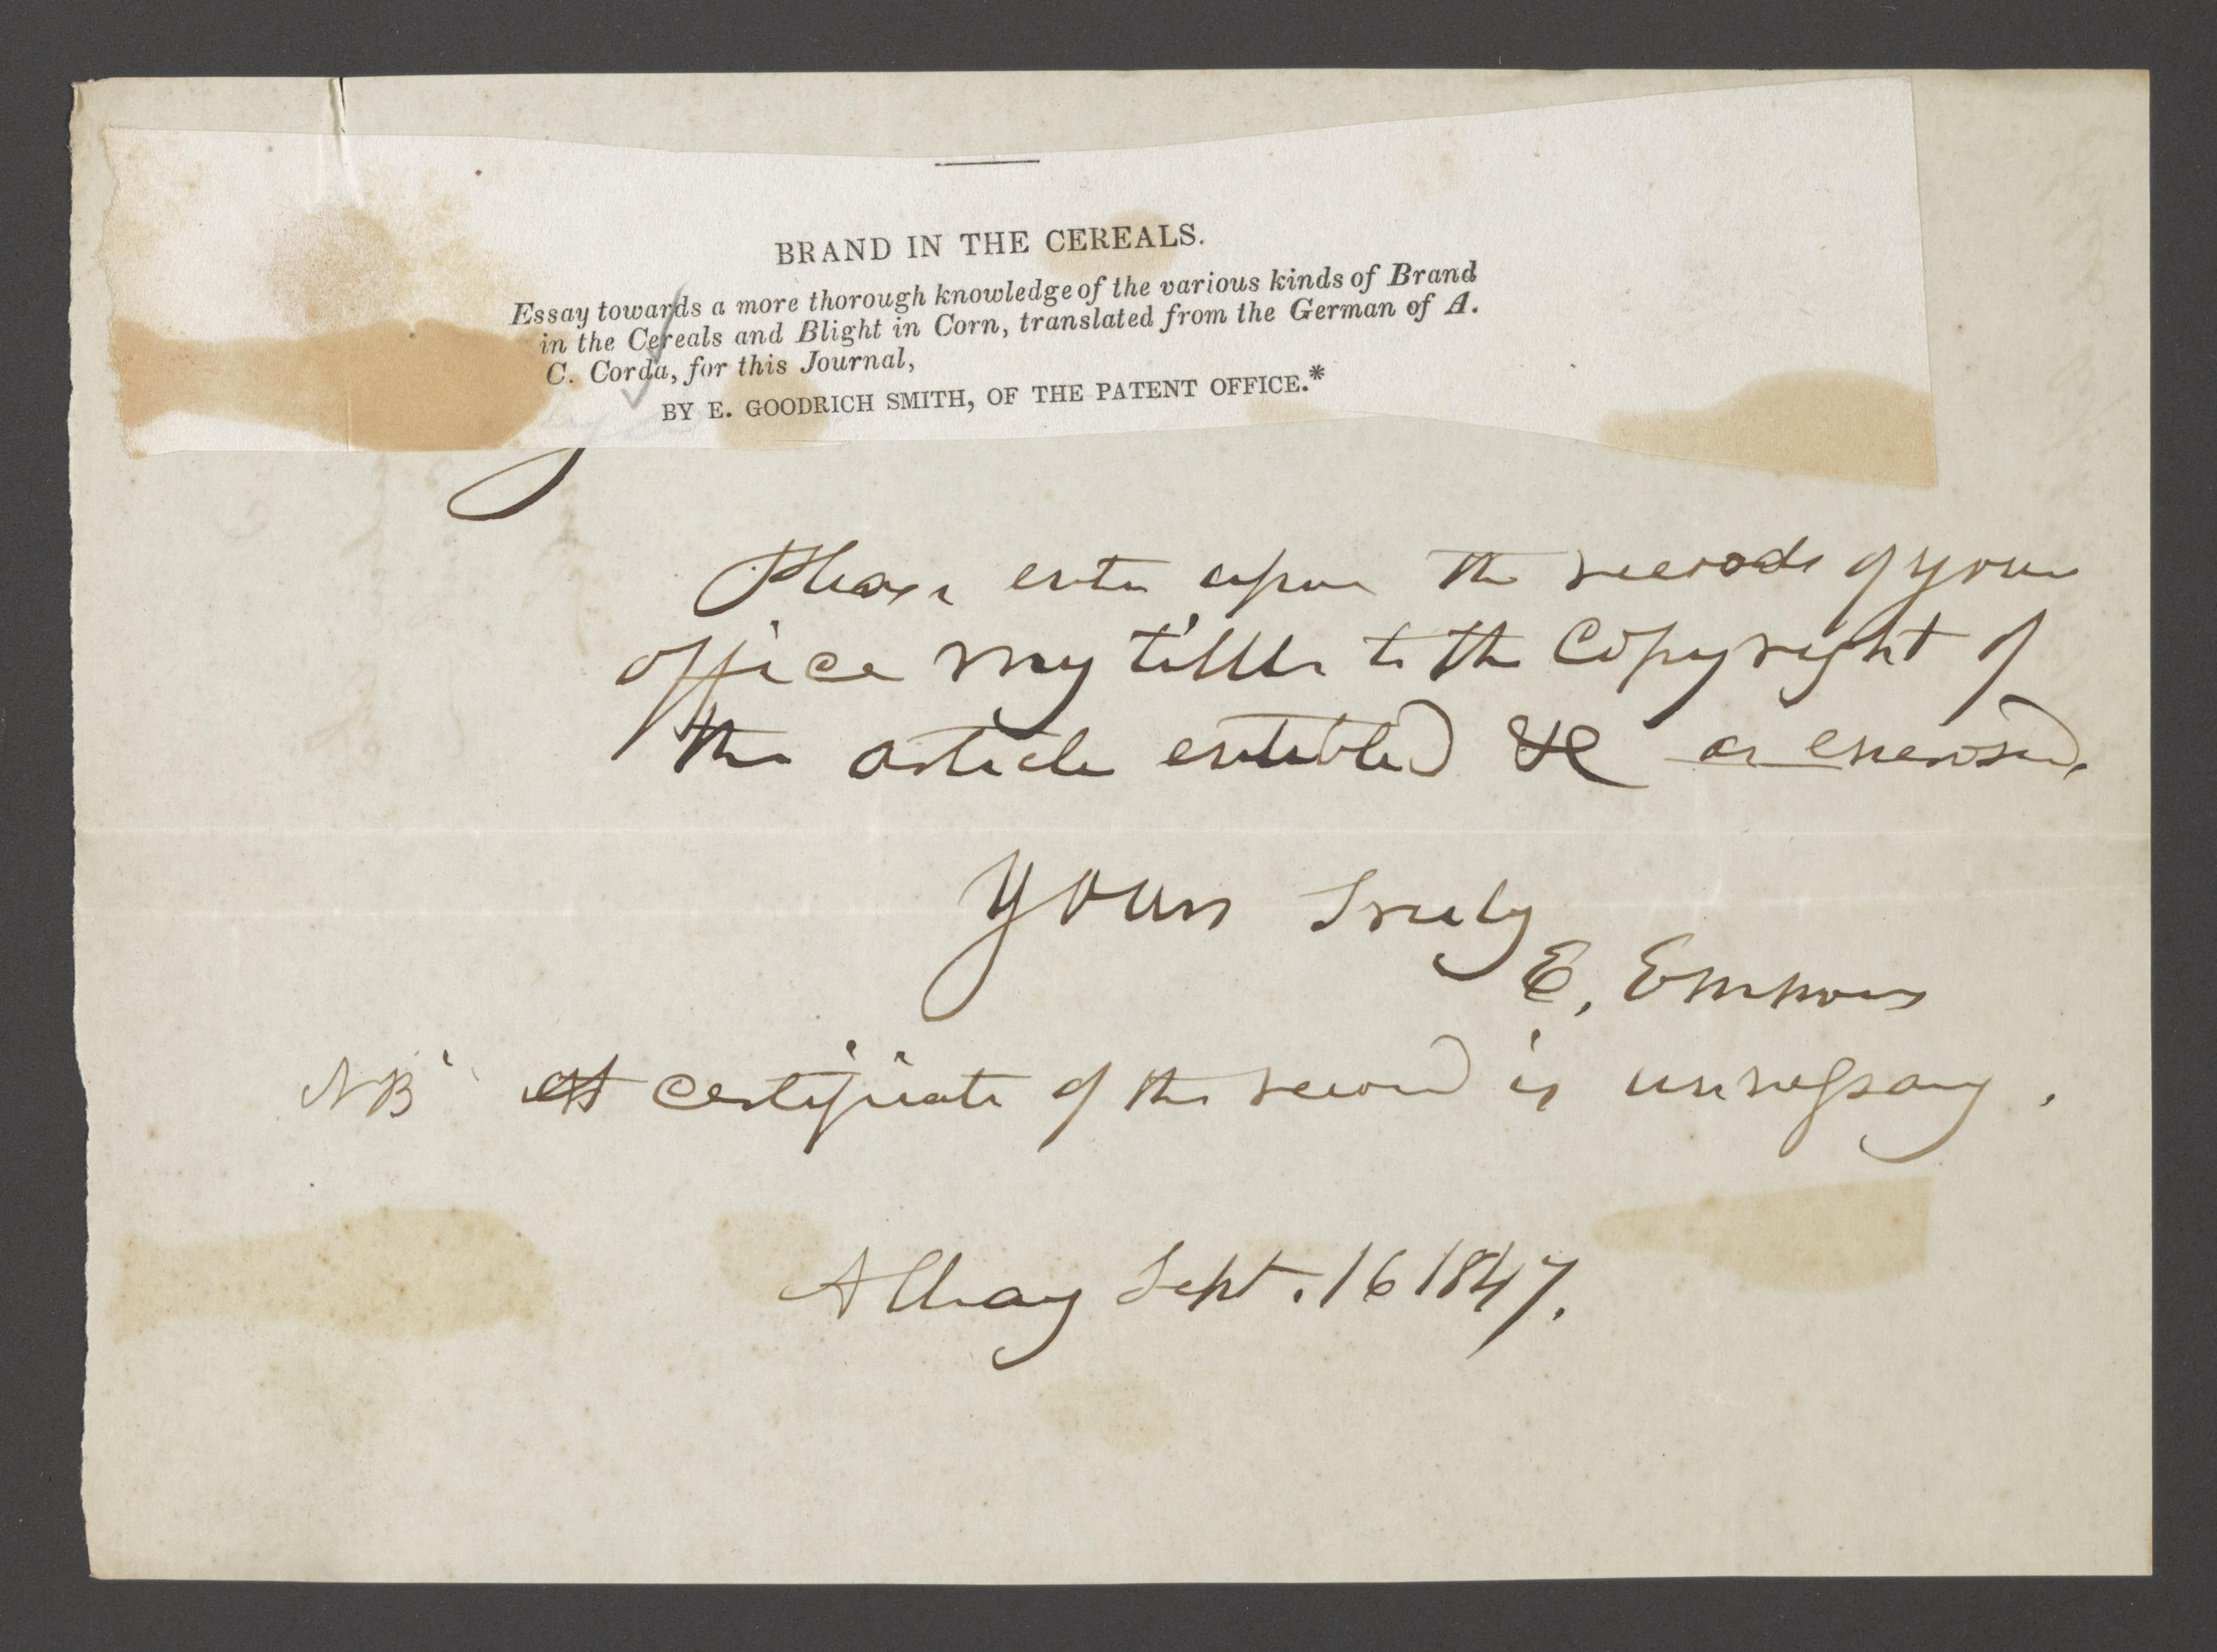 BRAND IN THE CEREALS.
Essay towards a more thorough knowledge of the various kinds of Brand
in the Cereals and Blight in Corn, translated from the German of A.
C. Corda, for this Journal,
BY E. GOODRICH SMITH, OF THE PATENT OFFICE.*
Please enter upon the records of your
office my title to the Copyright of
the article entitled &c as enclosed.
Yours Truly
E. Emmons
NB A certificate of the record is unnessary.
Albany Sept. 16 1847.